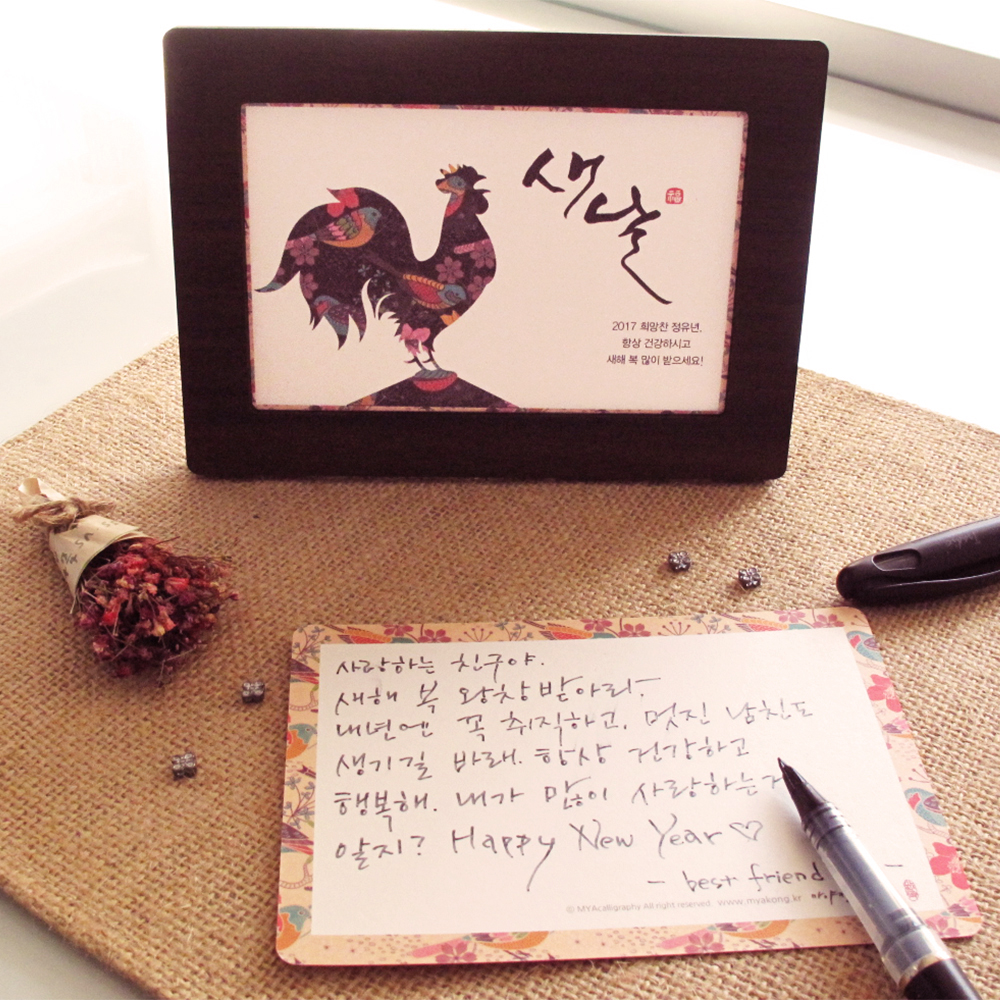 새날
2017 희망찬 정유년,
항상 건강하시고
새해 복 많이 받으세요!
사랑하는 친구야.
새해 복 왕창 받아라~
내년엔 꼭 취직하고, 멋진 남친도
생기길 바래. 항상 건강하고
행복해. 내가 많이 사랑하는거
알지? Happy New Year ♡
- best friend -
ⓒ MYAcalligraphy All right reserved www.myakong.kr